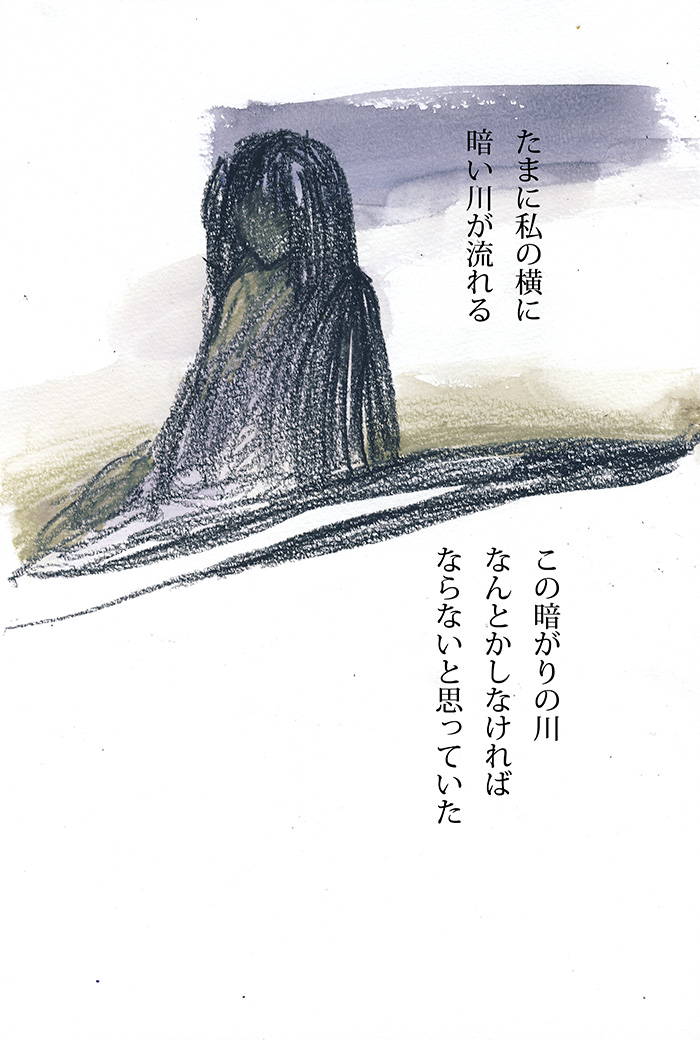 たまに私の横に
暗い川が流れる
この暗がりの川
なんとかしなければ
ならないと思っていた